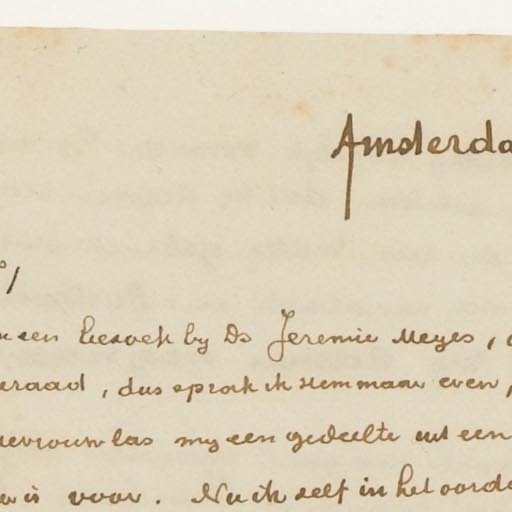 Amsterda
een bezoek by Ds Jeremie Meyes,
eraad, dus sprak ik hem maar even,
evrouw las my een gedeelte uit een
is voor. Nu ik zelf in het oorde